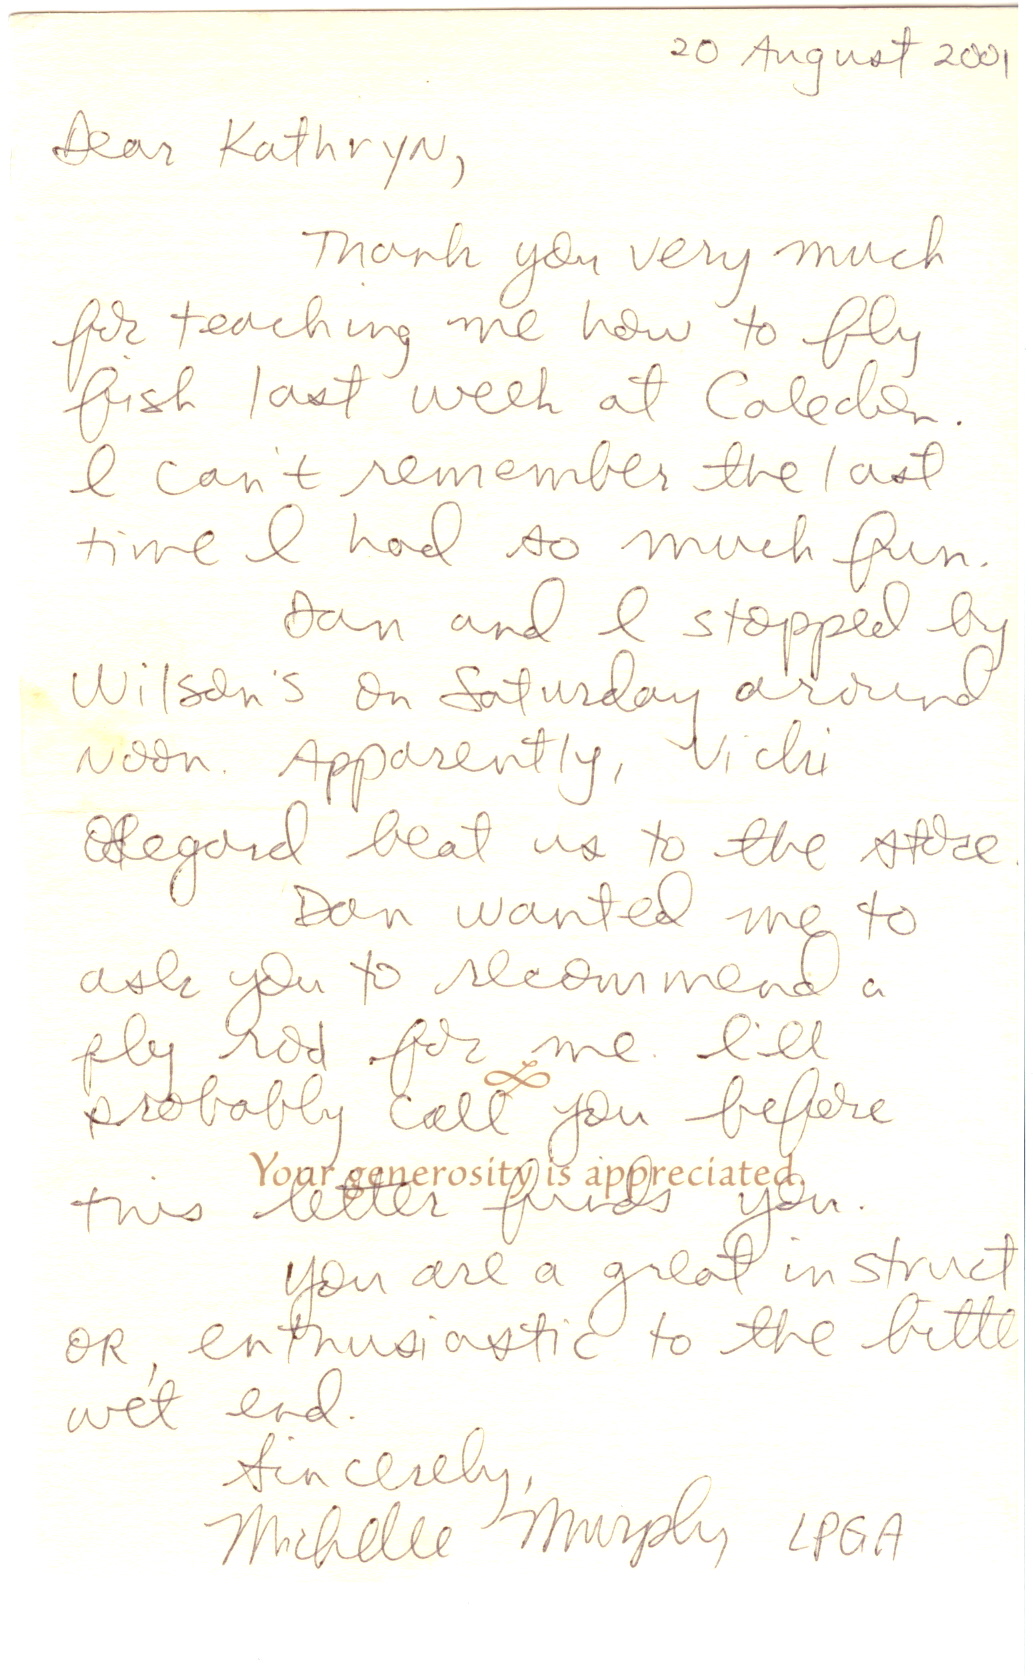 20 August 2001
Dear Kathryn,
Thank you very much
for teaching me how to fly
fish last week at Caledon.
I can't remember the last
time I had so much fun.
Dan and I stopped by
Wilson's on Saturday around
noon. Apparently, Vicki
beat us to the store.
Dan wanted me to
ask you to recommend a
fly rod for me. I'll
probably call you before
Your generosity is appreciated.
this letter finds you.
You are a great instruct
or, enthusiastic to the bitte
wet end.
Sincerely,
Michelle Murphy LPGA